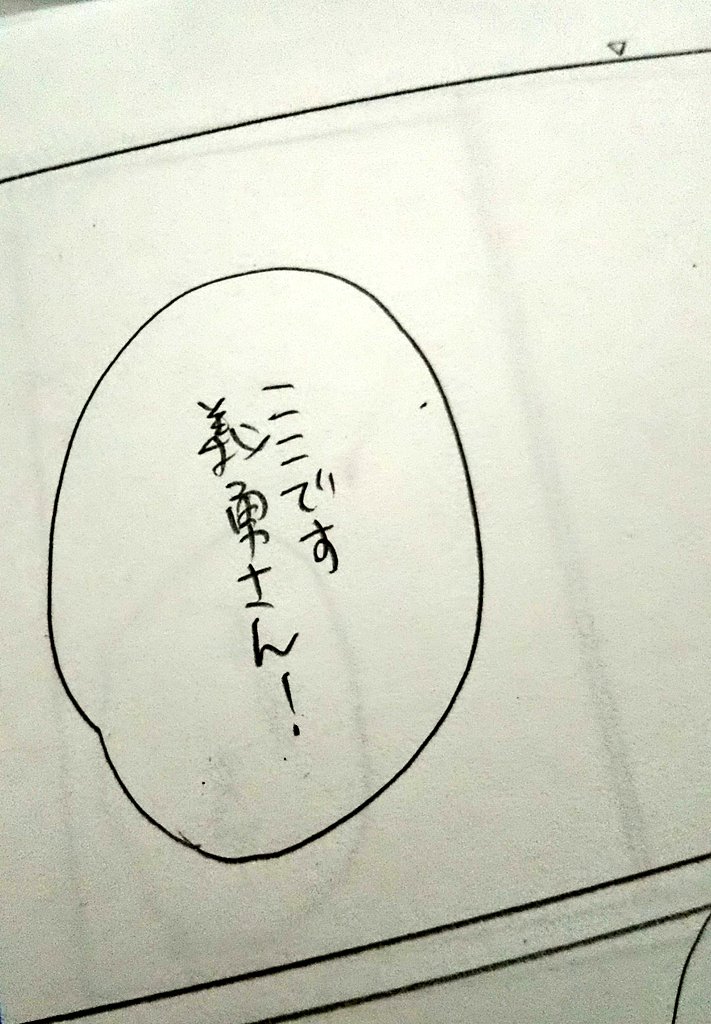 ここです
義勇さん!